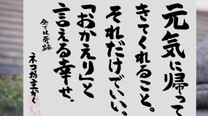 元気に帰って
きてくれること。
それだけでいい。
「おかえり」と
言える幸せ。
全ては奇跡
ネコ坊主かく